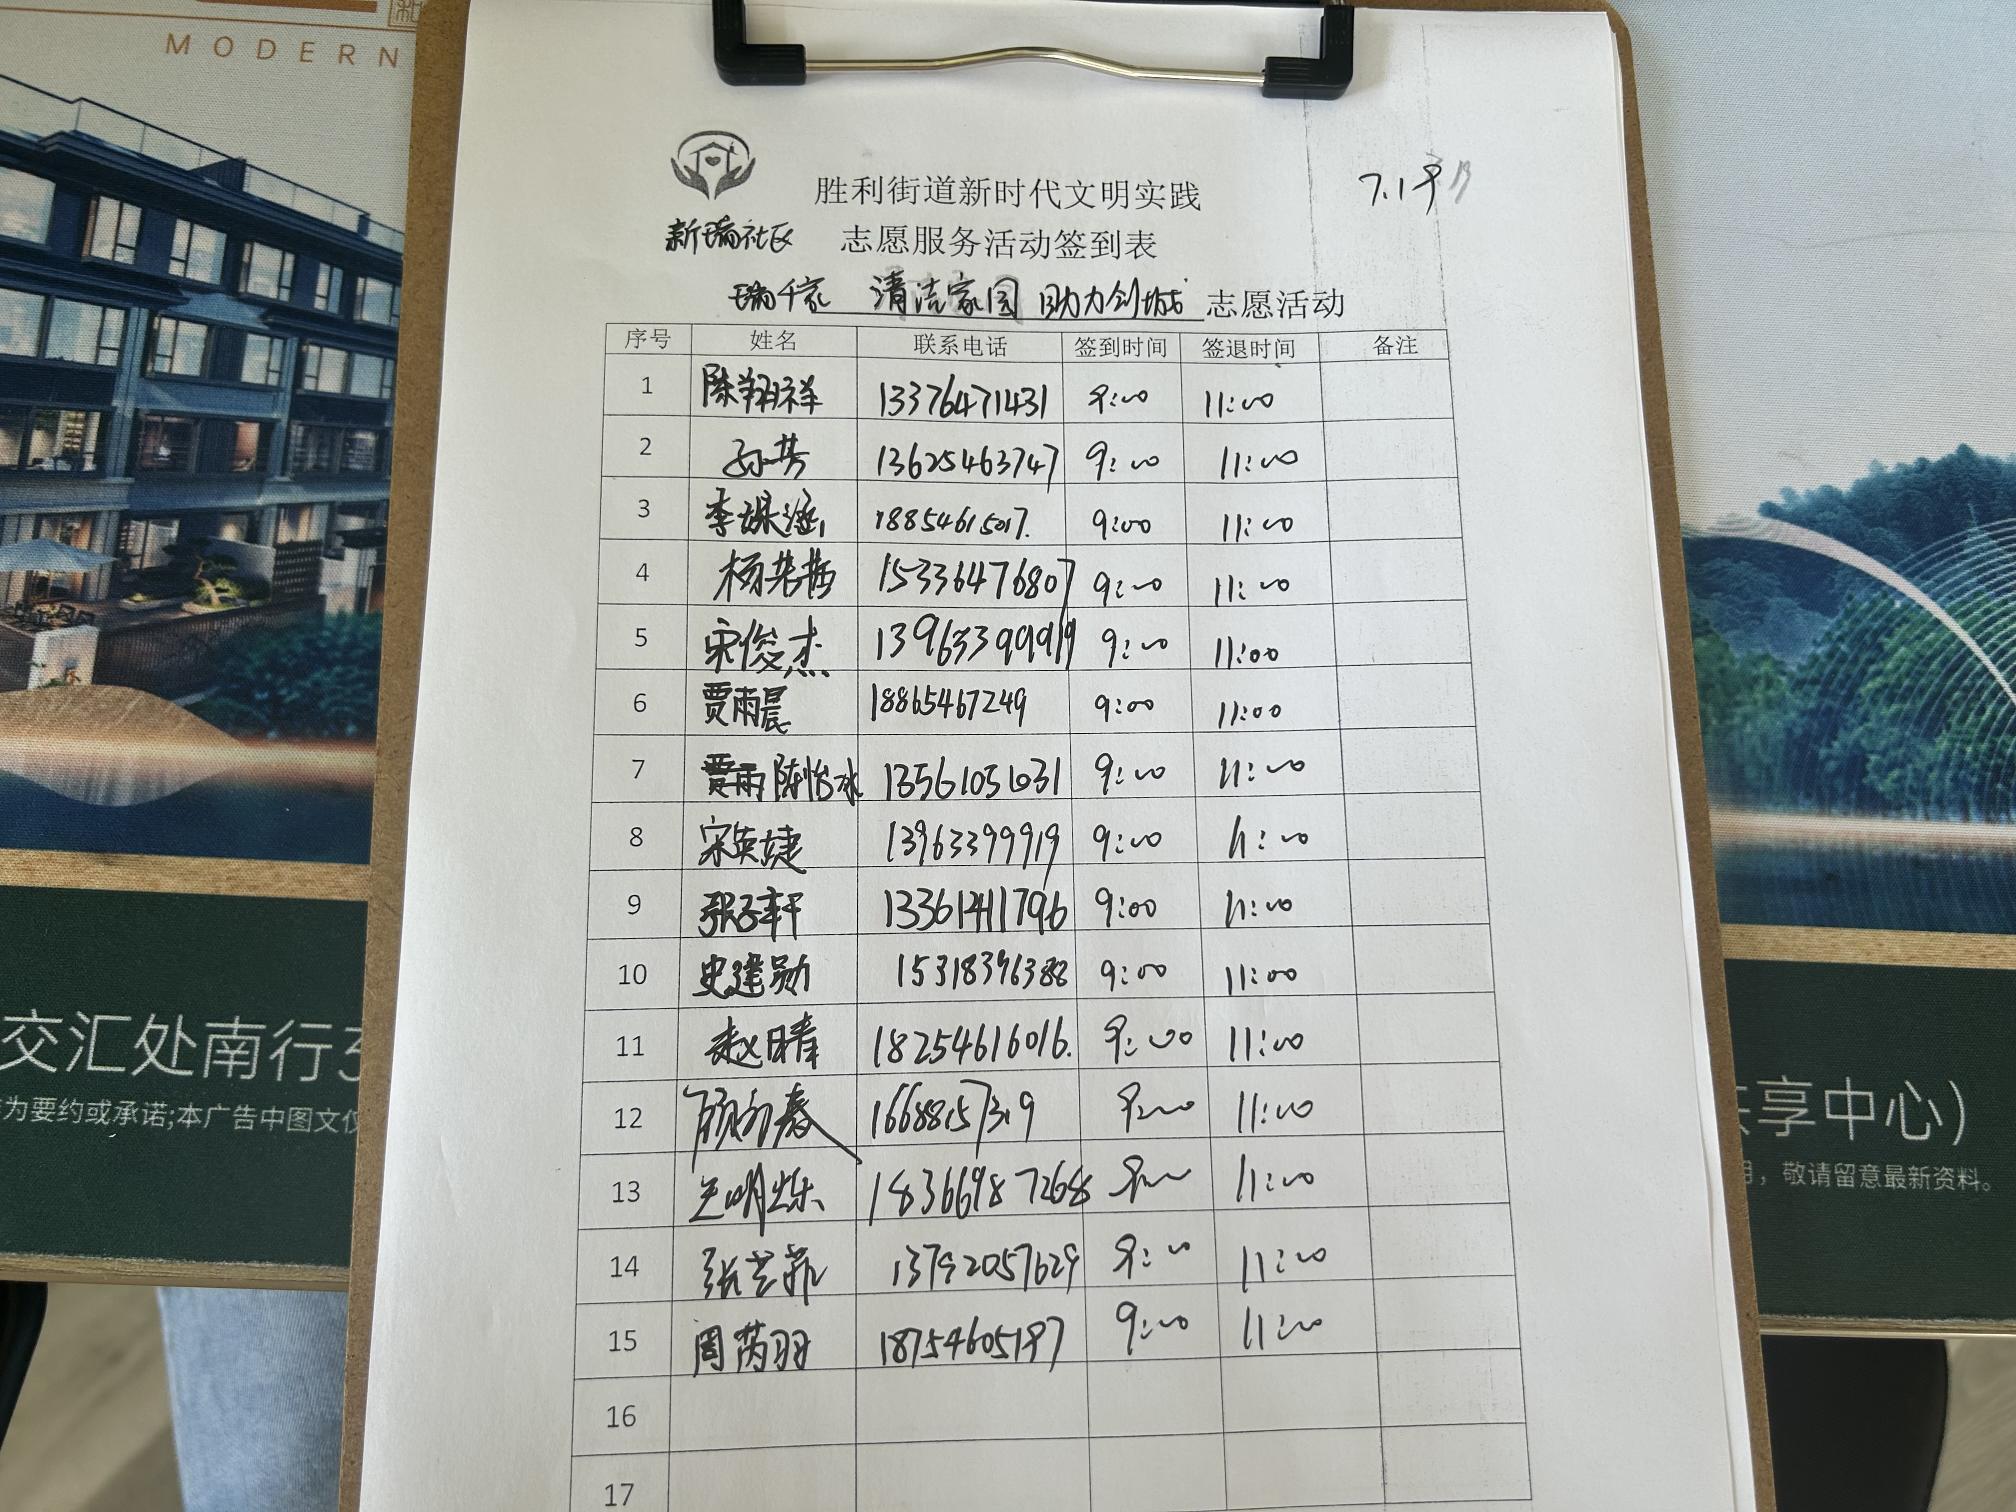 MODERN
7.19
胜利街道新时代文明实践
新瑞社区 志愿服务活动签到表
瑞千家 清洁家园 助力创城 志愿活动
序号 姓名 联系电话 签到时间 签退时间 备注
1 陈翔祥 13376471431 9:00 11:00
2 孙芳 13625463747 9:00 11:00
3 李 18854615017. 9:00 11:00
4 杨 15336476807 9:00 11:00
5 宋俊杰 13963399919 9:00 11:00
6 贾雨晨 18865467249 9:00 11:00
7 贾雨 陈怡冰 13561051031 9:00 11:00
8 宋英婕 13963399919 9:00 11:00
9 张子轩 13361411796 9:00 11:00
10 史建勋 15318396388 9:00 11:00
11 赵晴 18254616016. 9:00 11:00
12 9:00 11:00
13 兰明烁 18366987268 9:00 11:00
14 张艺菲 13792057629 9:00 11:00
15 周芮羽 18754605197 9:00 11:00
16
17
交汇处南行
为要约或承诺;本广告中图文仅
享中心）
，敬请留意最新资料。